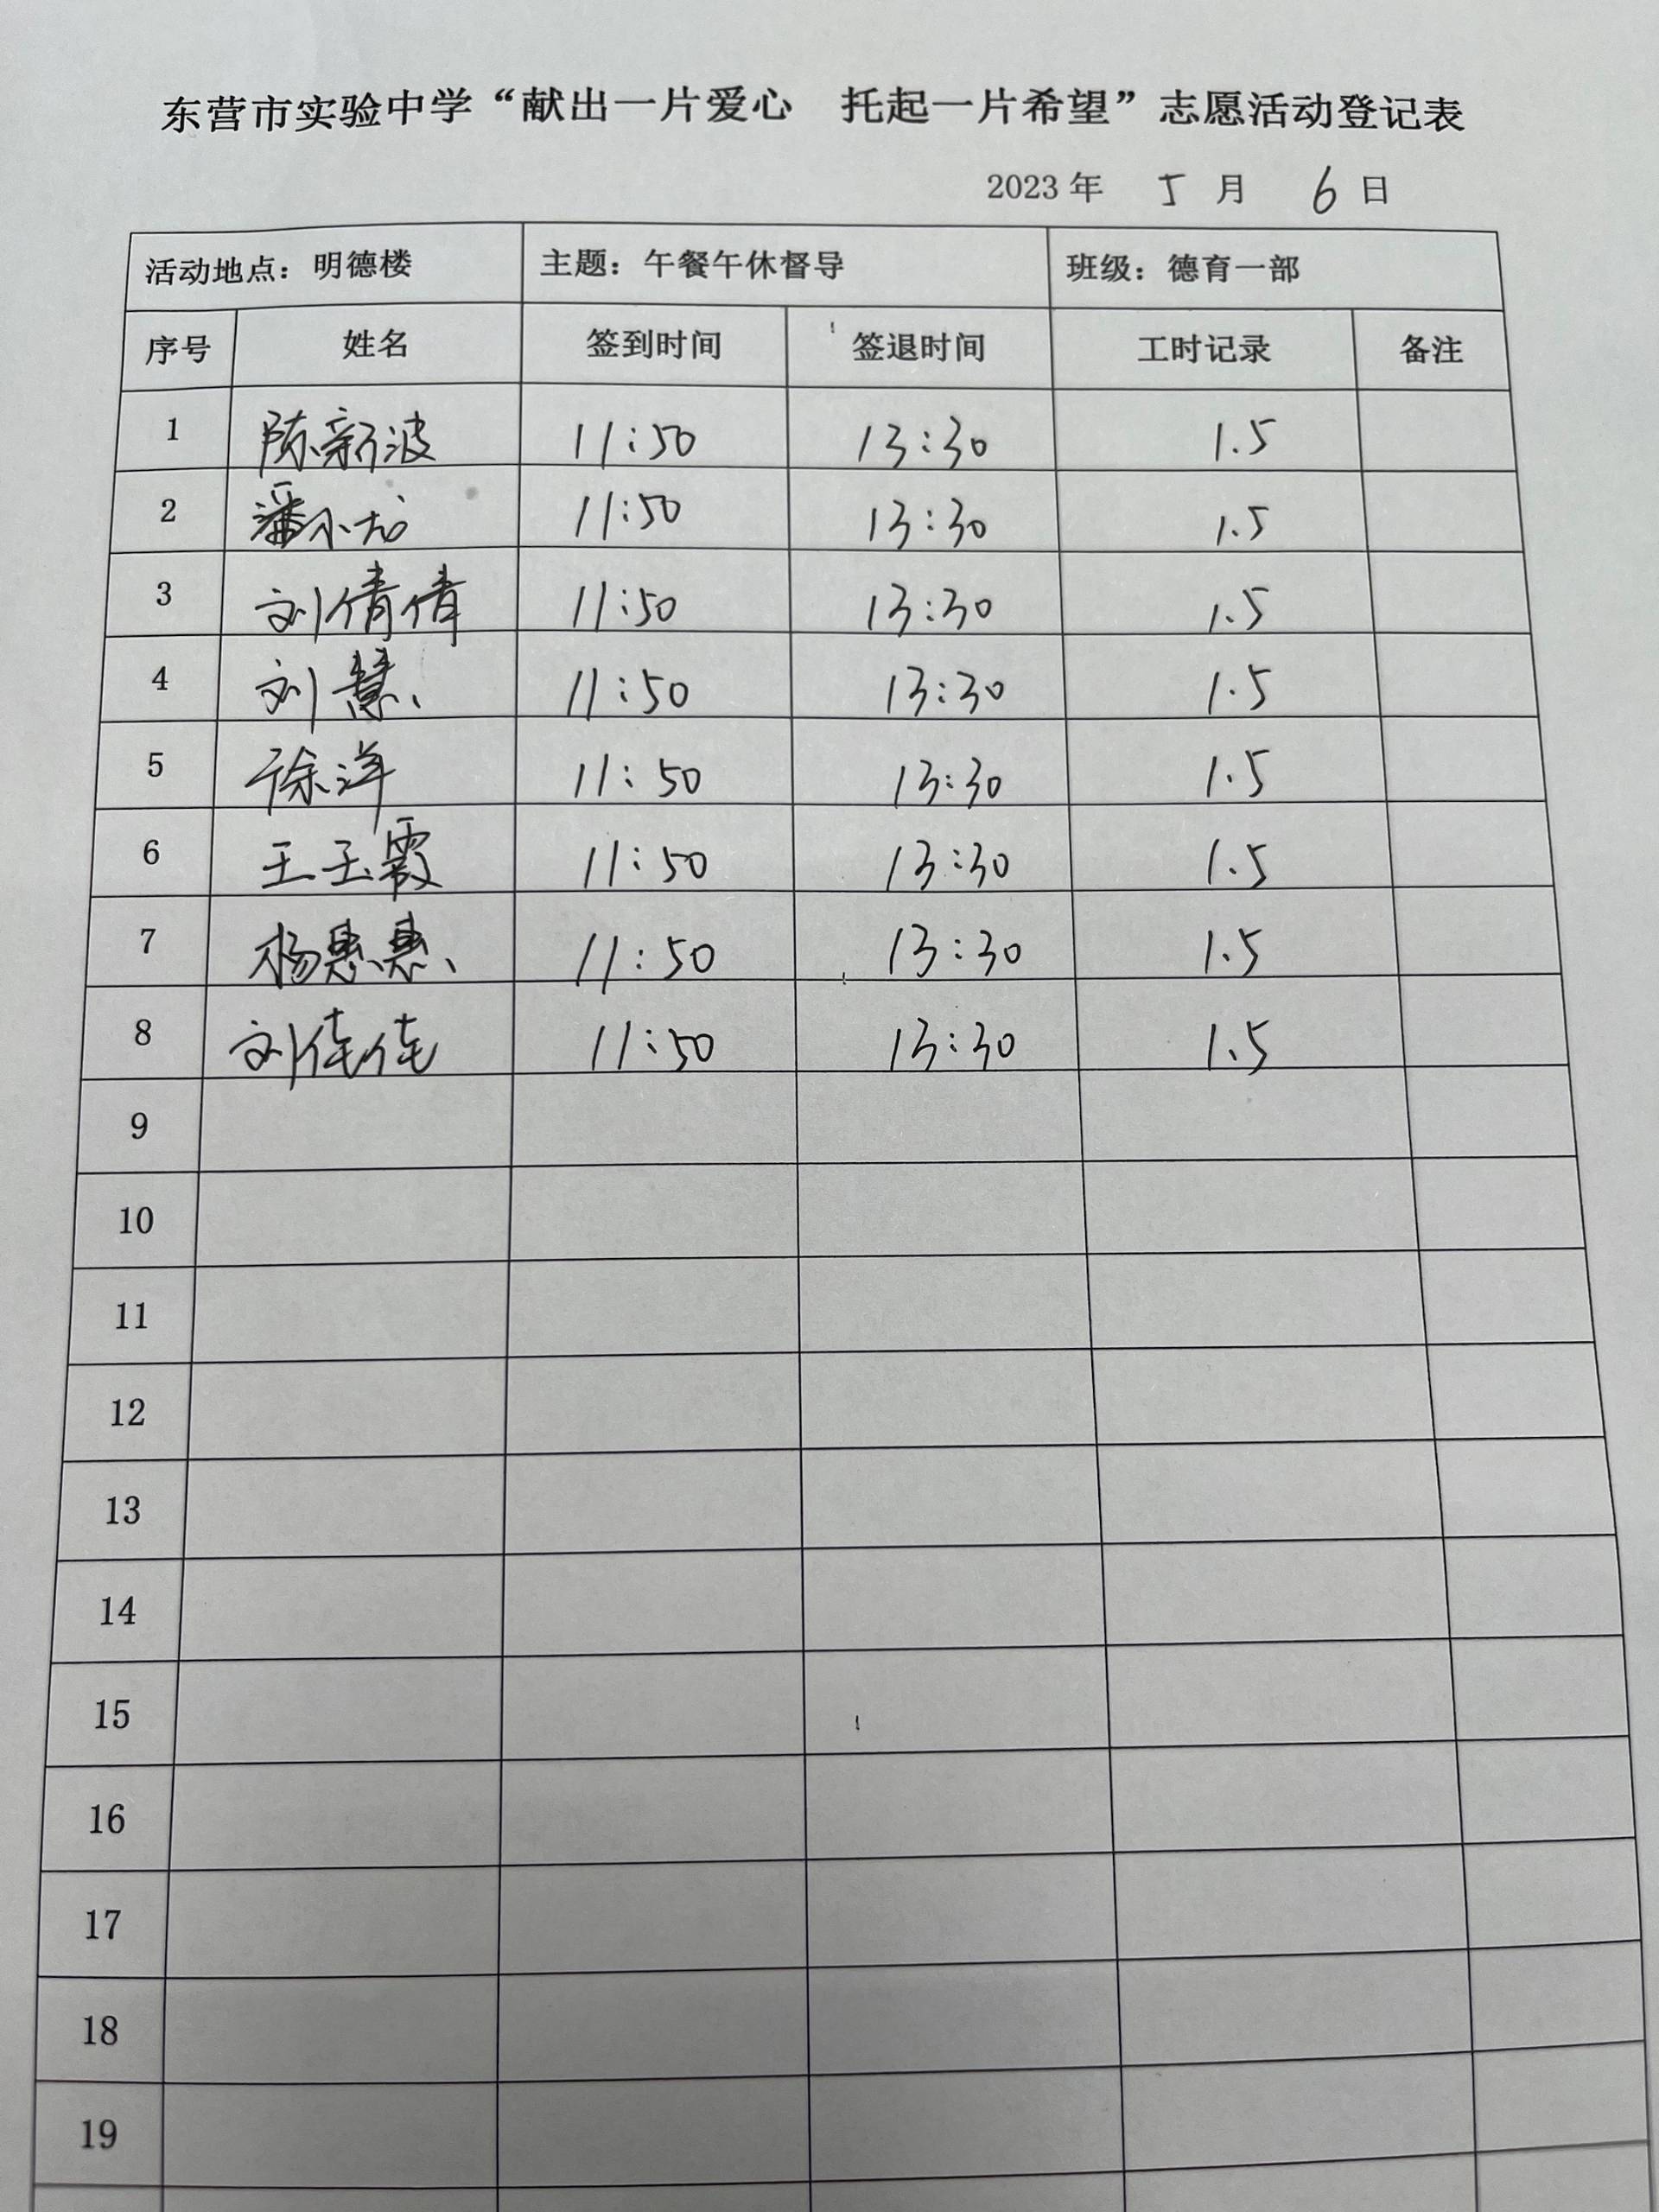 东营市实验中学“献出一片爱心 托起一片希望”志愿活动登记表
2023 年 5 月 6 日
活动地点：明德楼 主题：午餐午休督导 班级：德育一部
序号 姓名 签到时间 签退时间 工时记录 备注
1 陈新波 11:50 13:30 1.5
2 潘小龙 11:50 13:30 1.5
3 刘倩倩 11:50 13:30 1.5
4 刘慧 11:50 13:30 1.5
5 徐洋 11:50 13:30 1.5
6 王玉霞 11:50 13:30 1.5
7 杨惠惠 11:50 13:30 1.5
8 刘佳佳 11:50 13:30 1.5
9
10
11
12
13
14
15
16
17
18
19